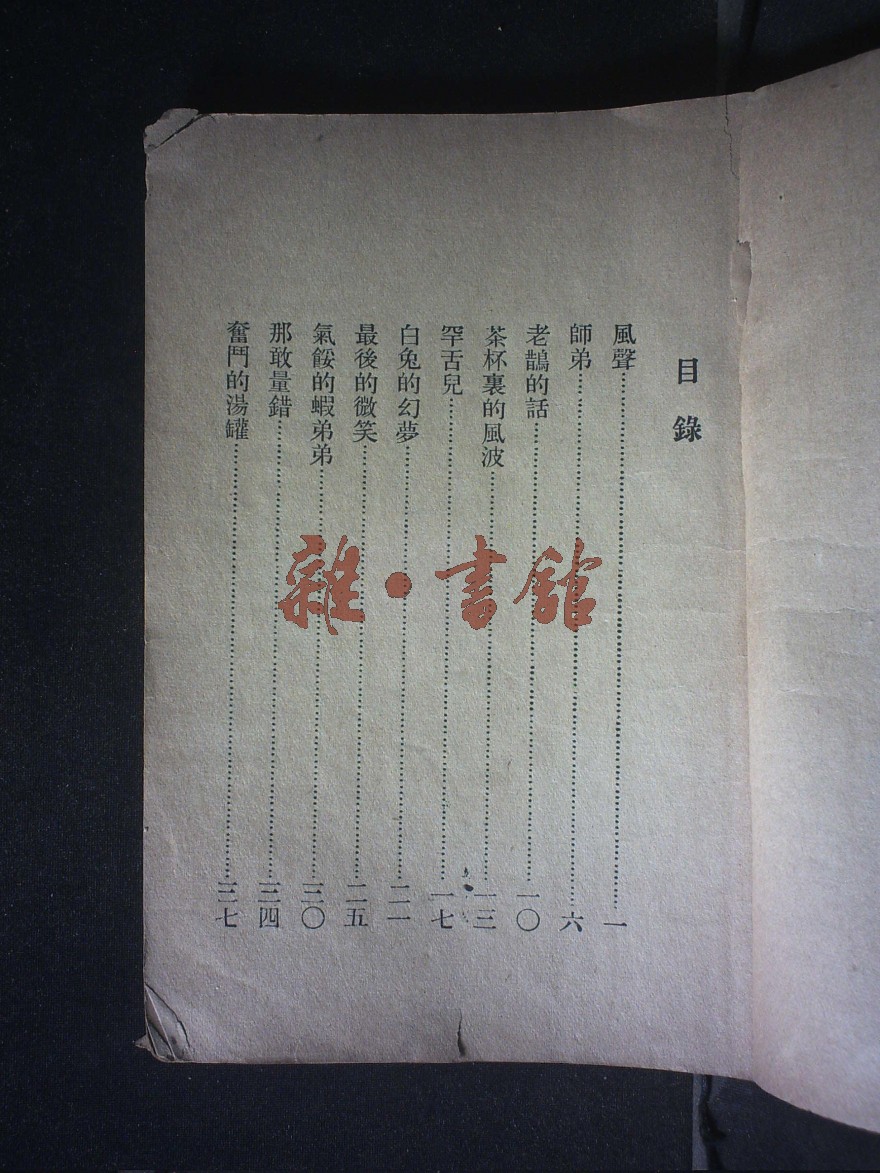 目錄
風聲……一
師弟……六
老鵲的話……一〇
茶杯裏的風波……一三
罕舌兒……一七
白兔的幻夢……二一
最後的微笑……二五
氣餒的蝦弟弟……三〇
那敢量錯……三四
奮鬥的湯罐……三七
雜·書館